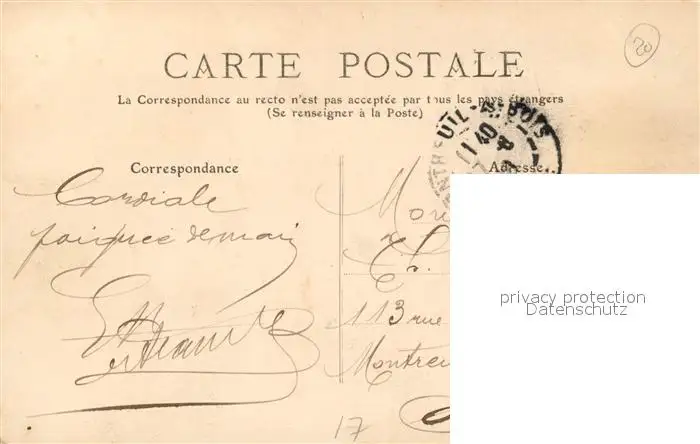 20
CARTE POSTALE
La Correspondance au recto n'est pas acceptée par tous les pays étrangers
(Se renseigner à la Poste)
UIL-S-BOIS
Correspondance
Adresse
Cordiale
poignée de main
113 rue
Montreu
17
privacy protection
Datenschutz